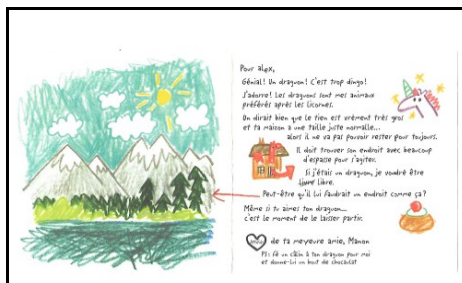 Pour alex,
Génial! Un draguon! C'est trop dingo!
J'adorre! Les draguons sont mes animaux
préférés après les licornes.
On dirait bien que le tien est vrément très gros
et ta maison a une taille juste normalle...
alors il ne va pas pouvoir rester pour toujours.
Il doit trouver son endroit avec beaucoup
d'espasse pour s'agiter.
Si j'étais un draguon, je voudré être
libre.
Peut-être qu'il lui faudrait un endroit comme ça?
Même si tu aimes ton draguon...
c'est le moment de le laisser partir.
de ta meyeure amie, Manon
PS: fé un câlin à ton draguon pour moi
et donne-lui un bout de chocolat